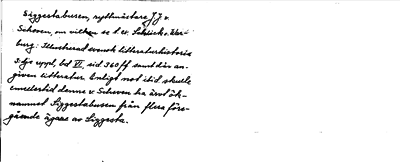 Siggestabusen, ryttmästare J J v.
Scheven, om vilken se t ex. Schück o. War-
burg: Illustrerad svensk litteraturhistoria
3:dje uppl, bd VI, sid 360 ff samt där an-
given litteratur. Enligt not ibid skulle
emellertid denne v Scheven ha ärvt ök-
namnet Siggestabusen från flera före-
gående ägare av Siggesta.